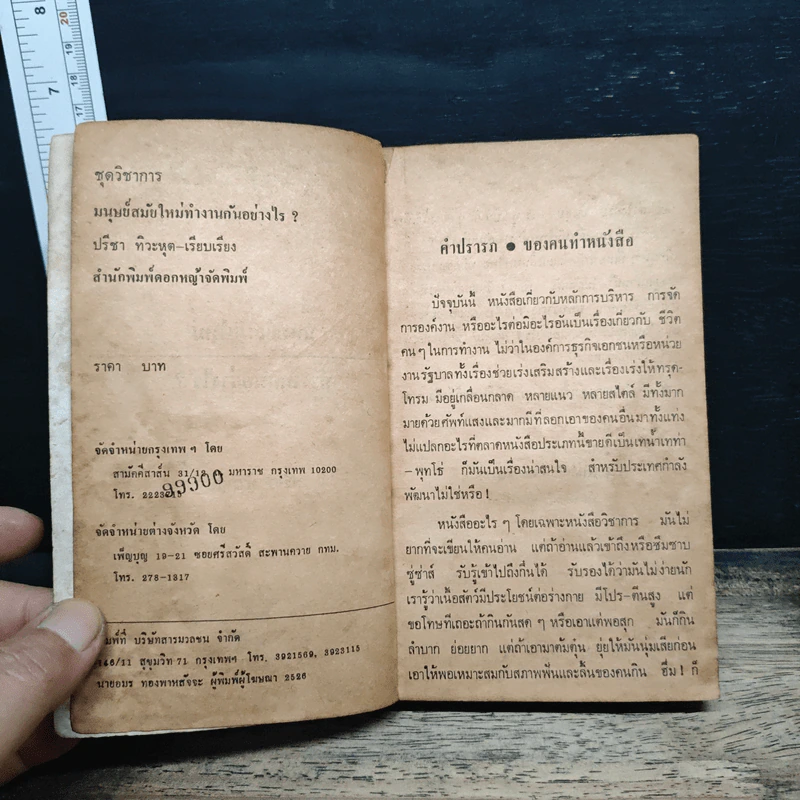 8
20
19
7
18
17
ชุดวิชาการ
มนุษย์สมัยใหม่ทำงานกันอย่างไร ?
ปรีชา ทิวะหุต–เรียบเรียง
สำนักพิมพ์ดอกหญ้าจัดพิมพ์
ราคา บาท
จัดจำหน่ายกรุงเทพ ฯ โดย
สามัคคีสาส์น 31/12 มหาราช กรุงเทพ 10200
โทร.
99300
จัดจำหน่ายต่างจังหวัด โดย
เพ็ญบุญ 19-21 ซอยศรีสวัสดิ์ สะพานควาย กทม.
โทร. 278-1317
พิมพ์ที่ บริษัทสารมวลชน จำกัด
146/11 สุขุมวิท 71 กรุงเทพฯ โทร. 3921569, 3923115
นายอมร ทองพาหสัจจะ ผู้พิมพ์ผู้โฆษณา 2526
คำปรารภ ● ของคนทำหนังสือ
ปัจจุบันนี้ หนังสือเกี่ยวกับหลักการบริหาร การจัด
การองค์งาน หรืออะไรต่อมิอะไรอันเป็นเรื่องเกี่ยวกับ ชีวิต
คน ๆ ในการทำงาน ไม่ว่าในองค์การธุรกิจเอกชนหรือหน่วย
งานรัฐบาลทั้งเรื่องช่วยเร่งเสริมสร้างและเรื่องเร่งให้ทรุด-
โทรม มีอยู่เกลื่อนกลาด หลายแนว หลายสไตล์ มีทั้งมาก
มายด้วยศัพท์แสงและมากมีที่ลอกเอาของคนอื่นมาทั้งแท่ง
ไม่แปลกอะไรที่ตลาดหนังสือประเภทนี้ขายดีเป็นเทน้ำเทท่า
–พุทโธ่ ก็มันเป็นเรื่องน่าสนใจ สำหรับประเทศกำลัง
พัฒนาไม่ใช่หรือ !
หนังสืออะไร ๆ โดยเฉพาะหนังสือวิชาการ มันไม่
ยากที่จะเขียนให้คนอ่าน แต่ถ้าอ่านแล้วเข้าถึงหรือซึมซาบ
ซู่ซ่าส์ รับรู้เข้าไปถึงกึ๋นได้ รับรองได้ว่ามันไม่ง่ายนัก
เรารู้ว่าเนื้อสัตว์มีประโยชน์ต่อร่างกาย มีโปร-ตีนสูง แต่
ขอโทษทีเถอะถ้ากินกันสด ๆ หรือเอาแต่พอสุก มันก็กิน
ลำบาก ย่อยยาก แต่ถ้าเอามาต้มตุ๋น ยุ่ยให้มันนุ่มเสียก่อน
เอาให้พอเหมาะสมกับสภาพฟันและลิ้นของคนกิน ฮึ่ม ! ก็